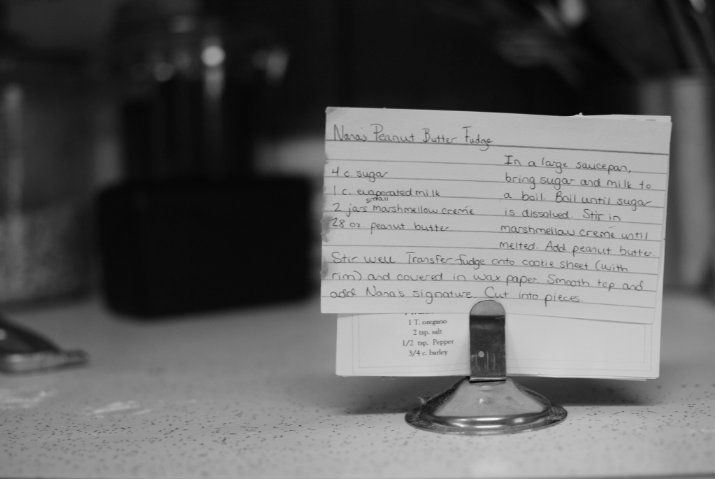 Nana's Peanut Butter Fudge
4 c. sugar
1 c. evaporated milk
small
2 jars marshmellow creme
28 oz peanut butter
In a large saucepan,
bring sugar and milk to
a boil. Boil until sugar
is dissolved. Stir in
marshmellow creme until
melted. Add peanut butter.
Stir well. Transfer fudge onto cookie sheet (with
rim) and covered in wax paper. Smooth top and
add Nana's signature. Cut into pieces.
1 T. oregano
2 tsp. salt
1/2 tsp. Pepper
3/4 c. barley